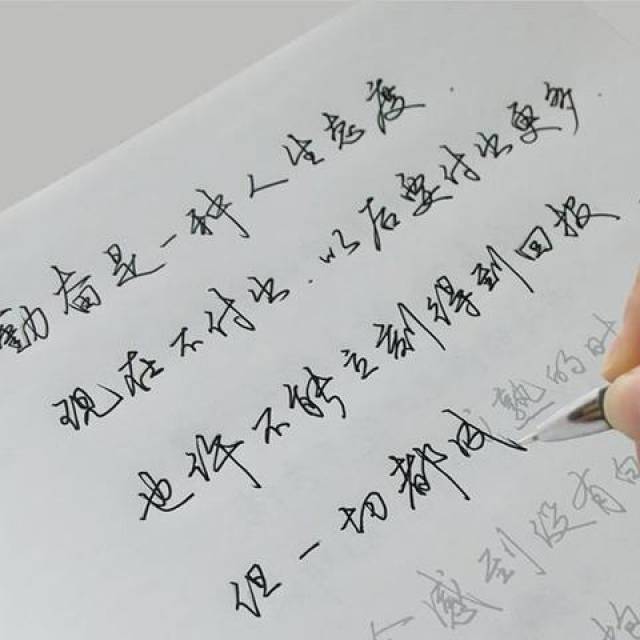 勤奋是一种人生态度.
现在不付出.以后要付出更多.
也许不能立刻得到回报
但一切都成熟的时
感到没有